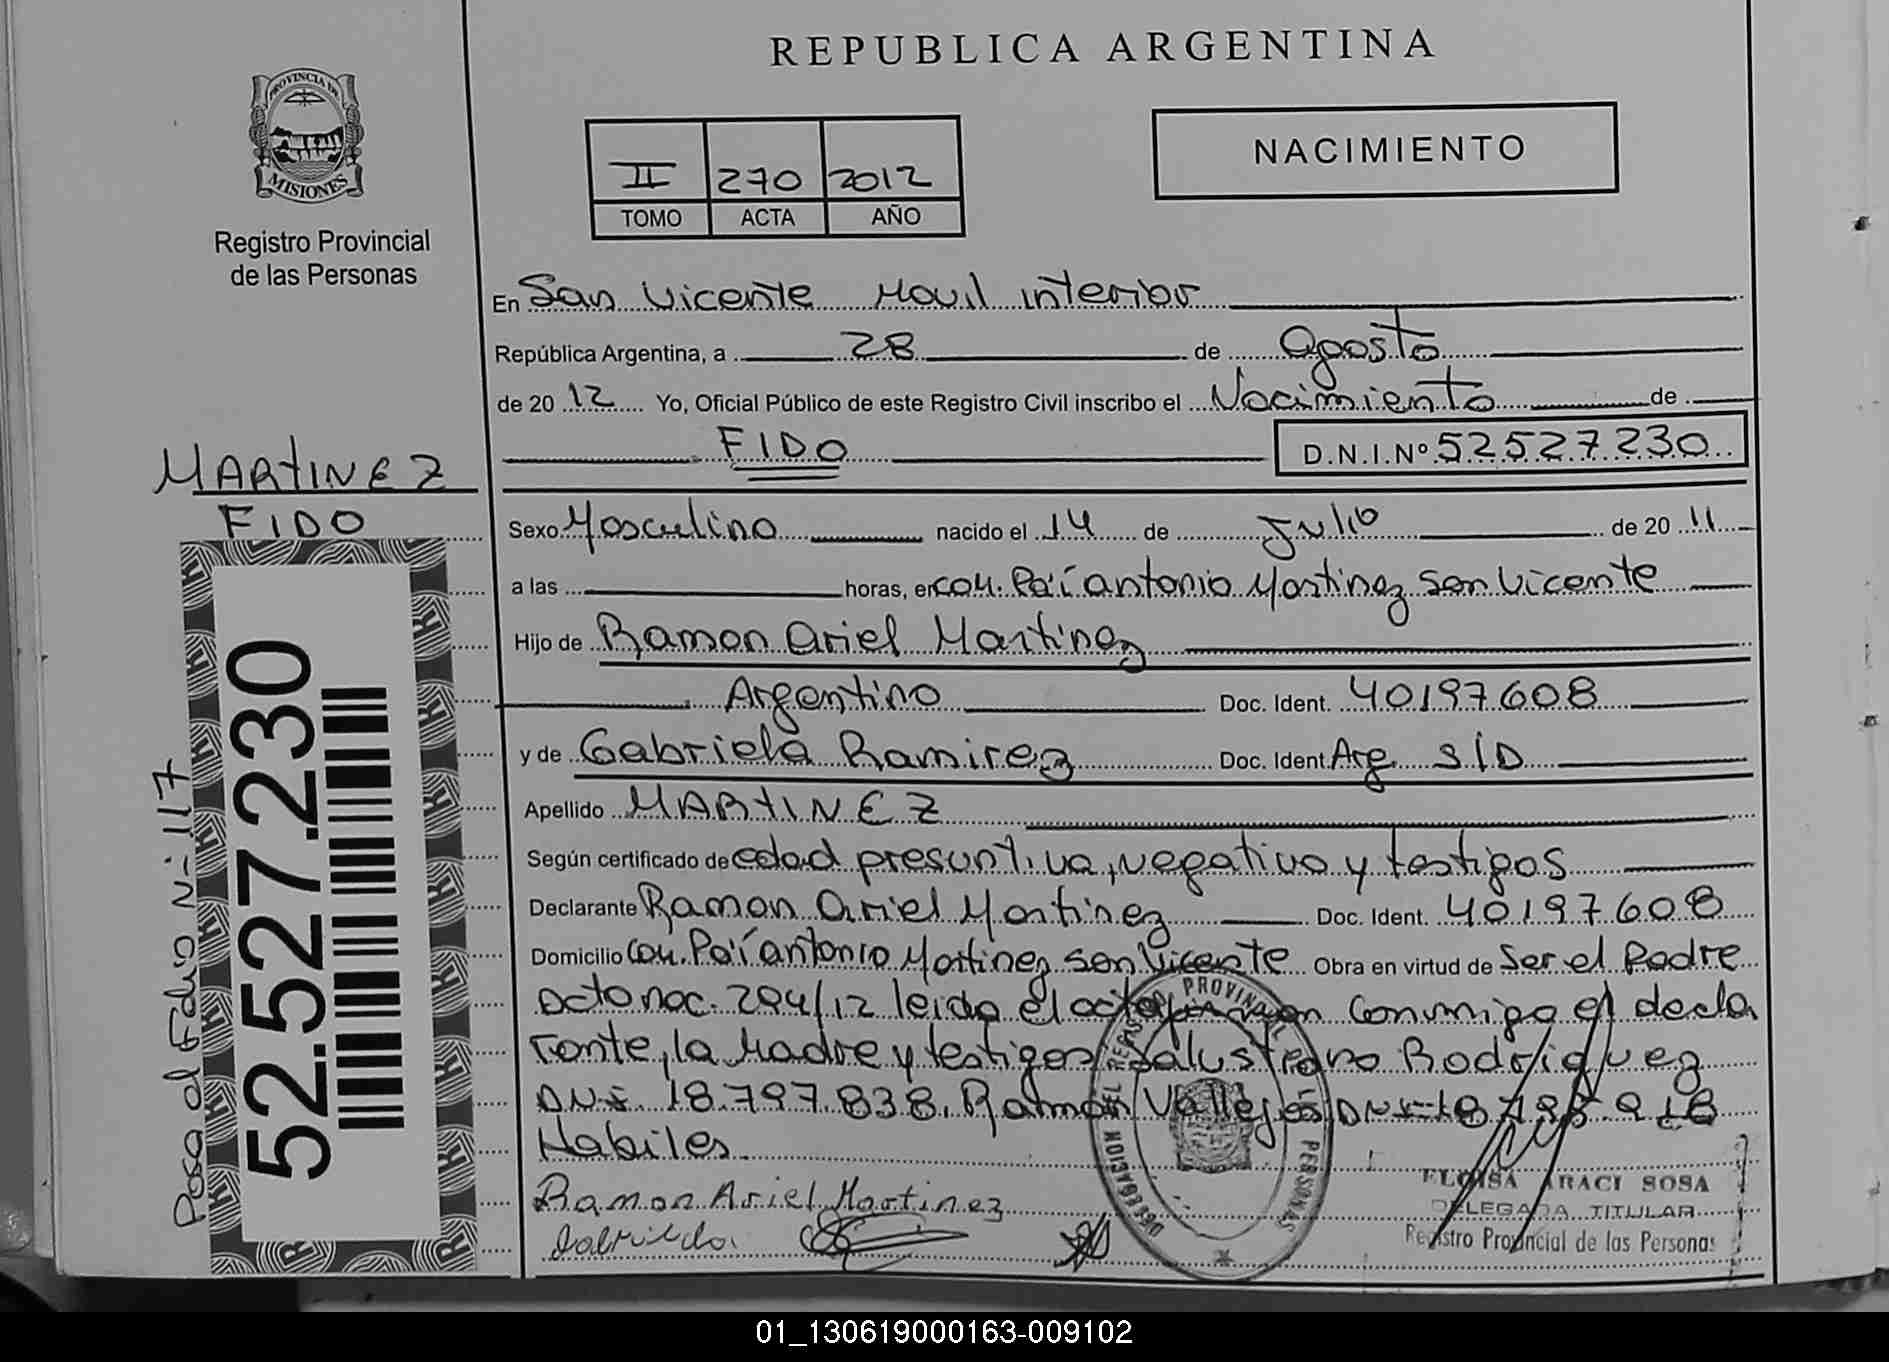 REPUBLICA ARGENTINA
PROVINCIA DE
MISIONES
Registro Provincial
de las Personas
NACIMIENTO
II 270 2012
TOMO ACTA AÑO
En San Vicente Movil interior
República Argentina, a 28 de Agosto
de 2012 Yo, Oficial Público de este Registro Civil inscribo el Nacimiento de
FIDO D.N.I.Nº 52527230
MARTINEZ
FIDO
Sexo Masculino nacido el 14 de Julio de 2011
a las horas, en com. Pa'í antonio Martinez San Vicente
Hijo de Ramon Ariel Martinez
Argentino Doc. Ident. 40197608
y de Gabriela Ramirez Doc. Ident. Arg. S/D
Apellido MARTINEZ
Según certificado de edad presuntiva, negativo y testigos
Declarante Ramon Ariel Martinez Doc. Ident. 40197608
Domicilio com. Pa'í antonio Martinez San Vicente Obra en virtud de Ser el Padre
acto nac. 294/12 leida el acta conmigo el decla
rante, la Madre y testigos Salustiano Rodriguez
DNI. 18.797.838. Ramón Vallejos DNI 18
Habiles
Ramon Ariel Martinez
52.527.230
Pasa al Folio Nº 117
DELEGACION DEL REGISTRO PROVINCIAL DE LAS PERSONAS
ELOISA ARACI SOSA
DELEGADA TITULAR
Registro Provincial de las Personas
01_130619000163-009102